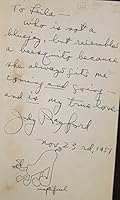 To Leila —
who is not a
bluejay, but resembles
a mosquito, because
she always gets me
coming and going —
and is my true love
July Rayford
Nov. 23rd, 1951